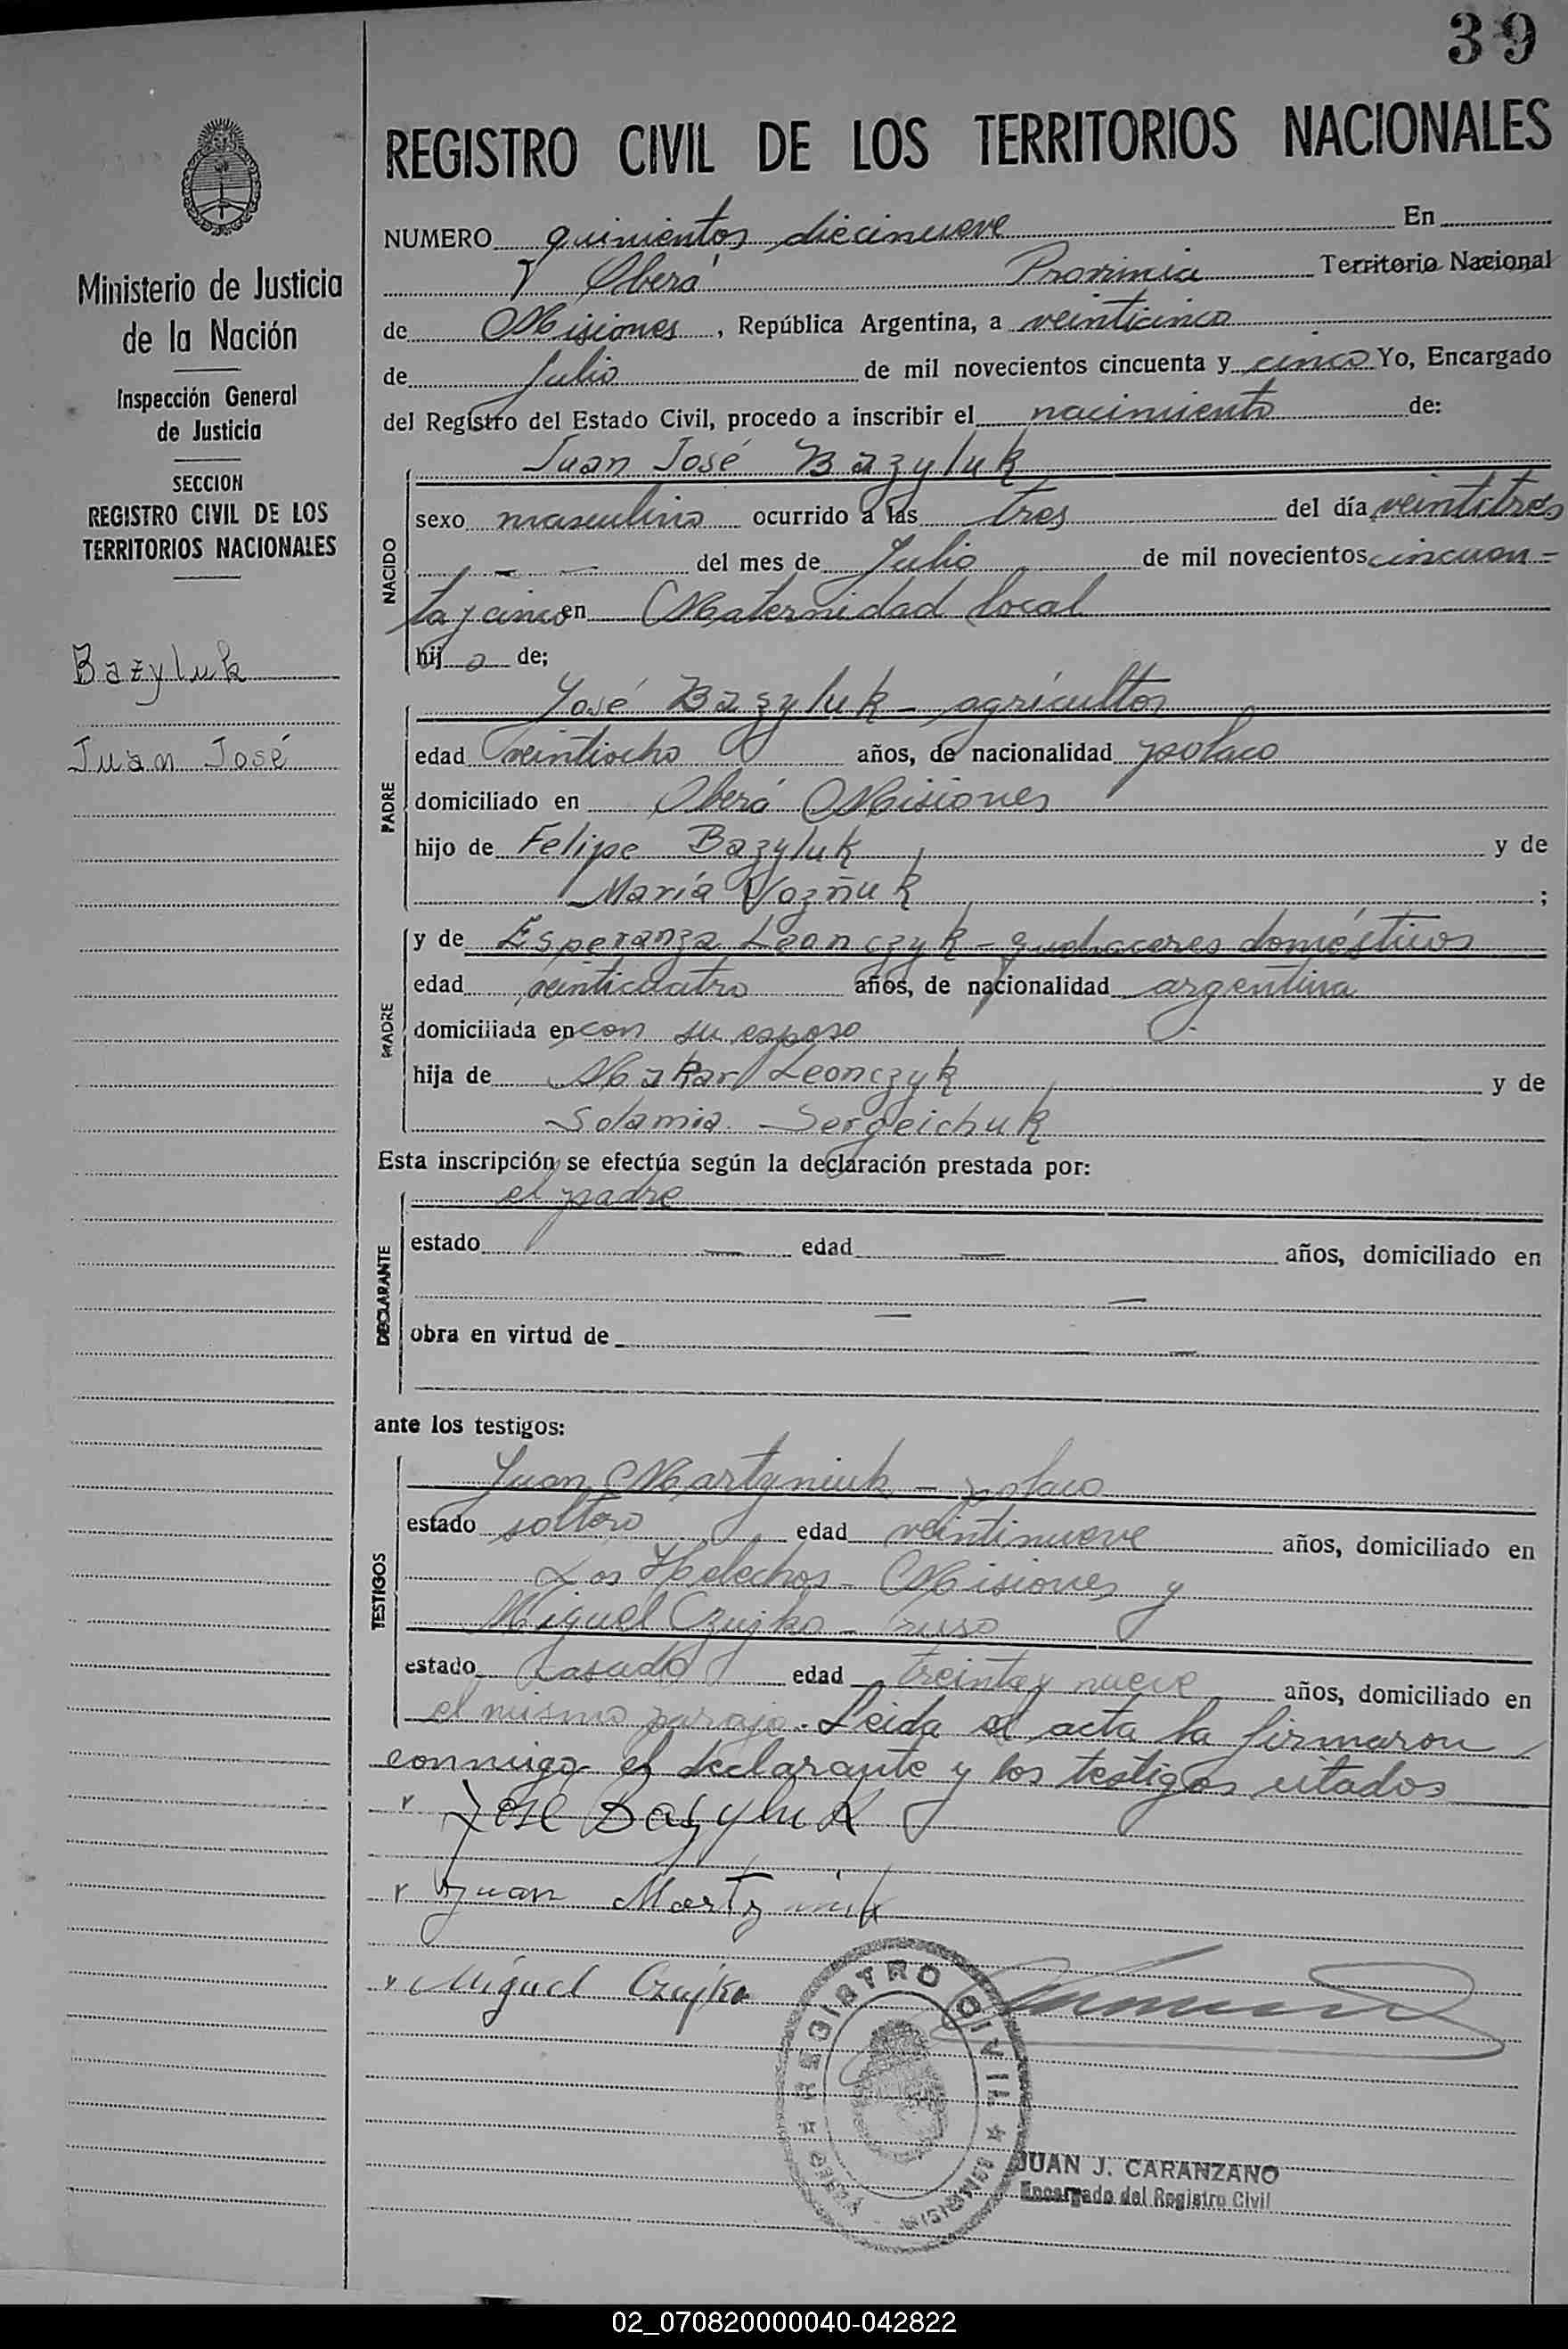 39
REGISTRO CIVIL DE LOS TERRITORIOS NACIONALES
Ministerio de Justicia
de la Nación
Inspección General
de Justicia
SECCION
REGISTRO CIVIL DE LOS
TERRITORIOS NACIONALES
Bazyluk
Juan José
NUMERO quinientos diecinueve En
Oberá Provincia Territorio Nacional
de Misiones, República Argentina, a veinticinco
de Julio de mil novecientos cincuenta y cinco Yo, Encargado
del Registro del Estado Civil, procedo a inscribir el nacimiento de:
Juan José Bazyluk
NACIDO
sexo masculino ocurrido a las tres del día veintitres
— — del mes de Julio de mil novecientos cincuen=
ta y cinco en Maternidad local
hij o de;
PADRE
José Bazyluk - agricultor
edad veintiocho años, de nacionalidad polaco
domiciliado en Oberá Misiones
hijo de Felipe Bazyluk y de
María Vozñuk ;
MADRE
y de Esperanza Leonczyk - quehaceres domésticos
edad veinticuatro años, de nacionalidad argentina
domiciliada en con su esposo
hija de Makar Leonczyk y de
Solamia Sergeichuk
Esta inscripción se efectúa según la declaración prestada por:
DECLARANTE
el padre
estado — edad — años, domiciliado en
— —
obra en virtud de — —
ante los testigos:
TESTIGOS
Juan Martyniuk - polaco
estado soltero edad veintinueve años, domiciliado en
Los Helechos - Misiones y
Miguel Czujko - ruso
estado casado edad treinta y nueve años, domiciliado en
el mismo paraje. Leida el acta la firmaron
conmigo el declarante y los testigos citados
José Bazyluk
Juan Martyniuk
Miguel Czujko
REGISTRO CIVIL
OBERA - MISIONES
JUAN J. CARANZANO
Encargado del Registro Civil
02_070820000040-042822